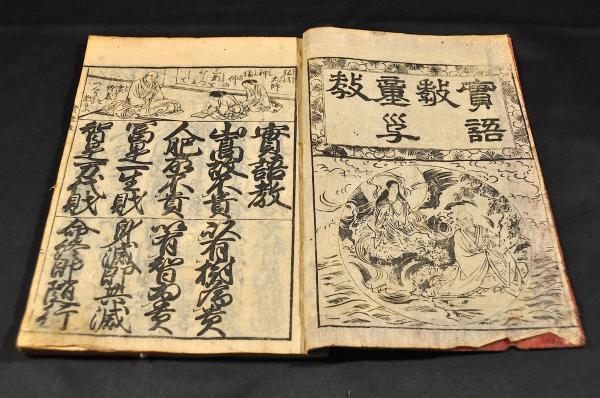 實語
教
童子
教
實語教
山高故不貴
以有樹為貴
人肥故不貴
以有智為貴
富是一生財
身滅即共滅
智是万代財
命終即随行
大師